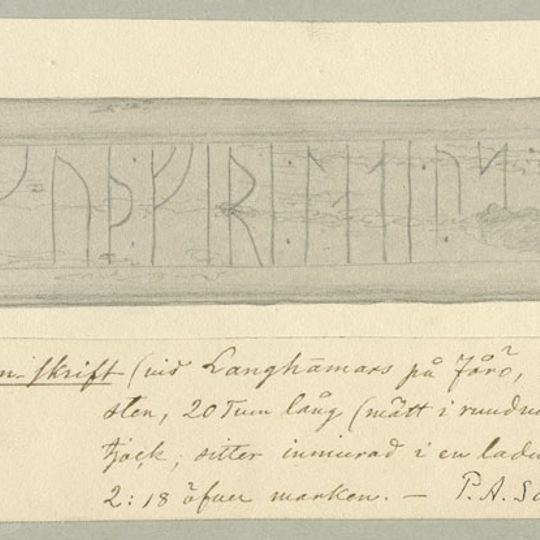 ᚢᚦᚠᛁᚱᛁ᛬
n-skrift (vid Langhāmars på Fårö,
sten, 20 Tum lång (mätt i rundn
tjock; sitter inmurad i en ladu
2:18 öfver marken. — P.A. Sä